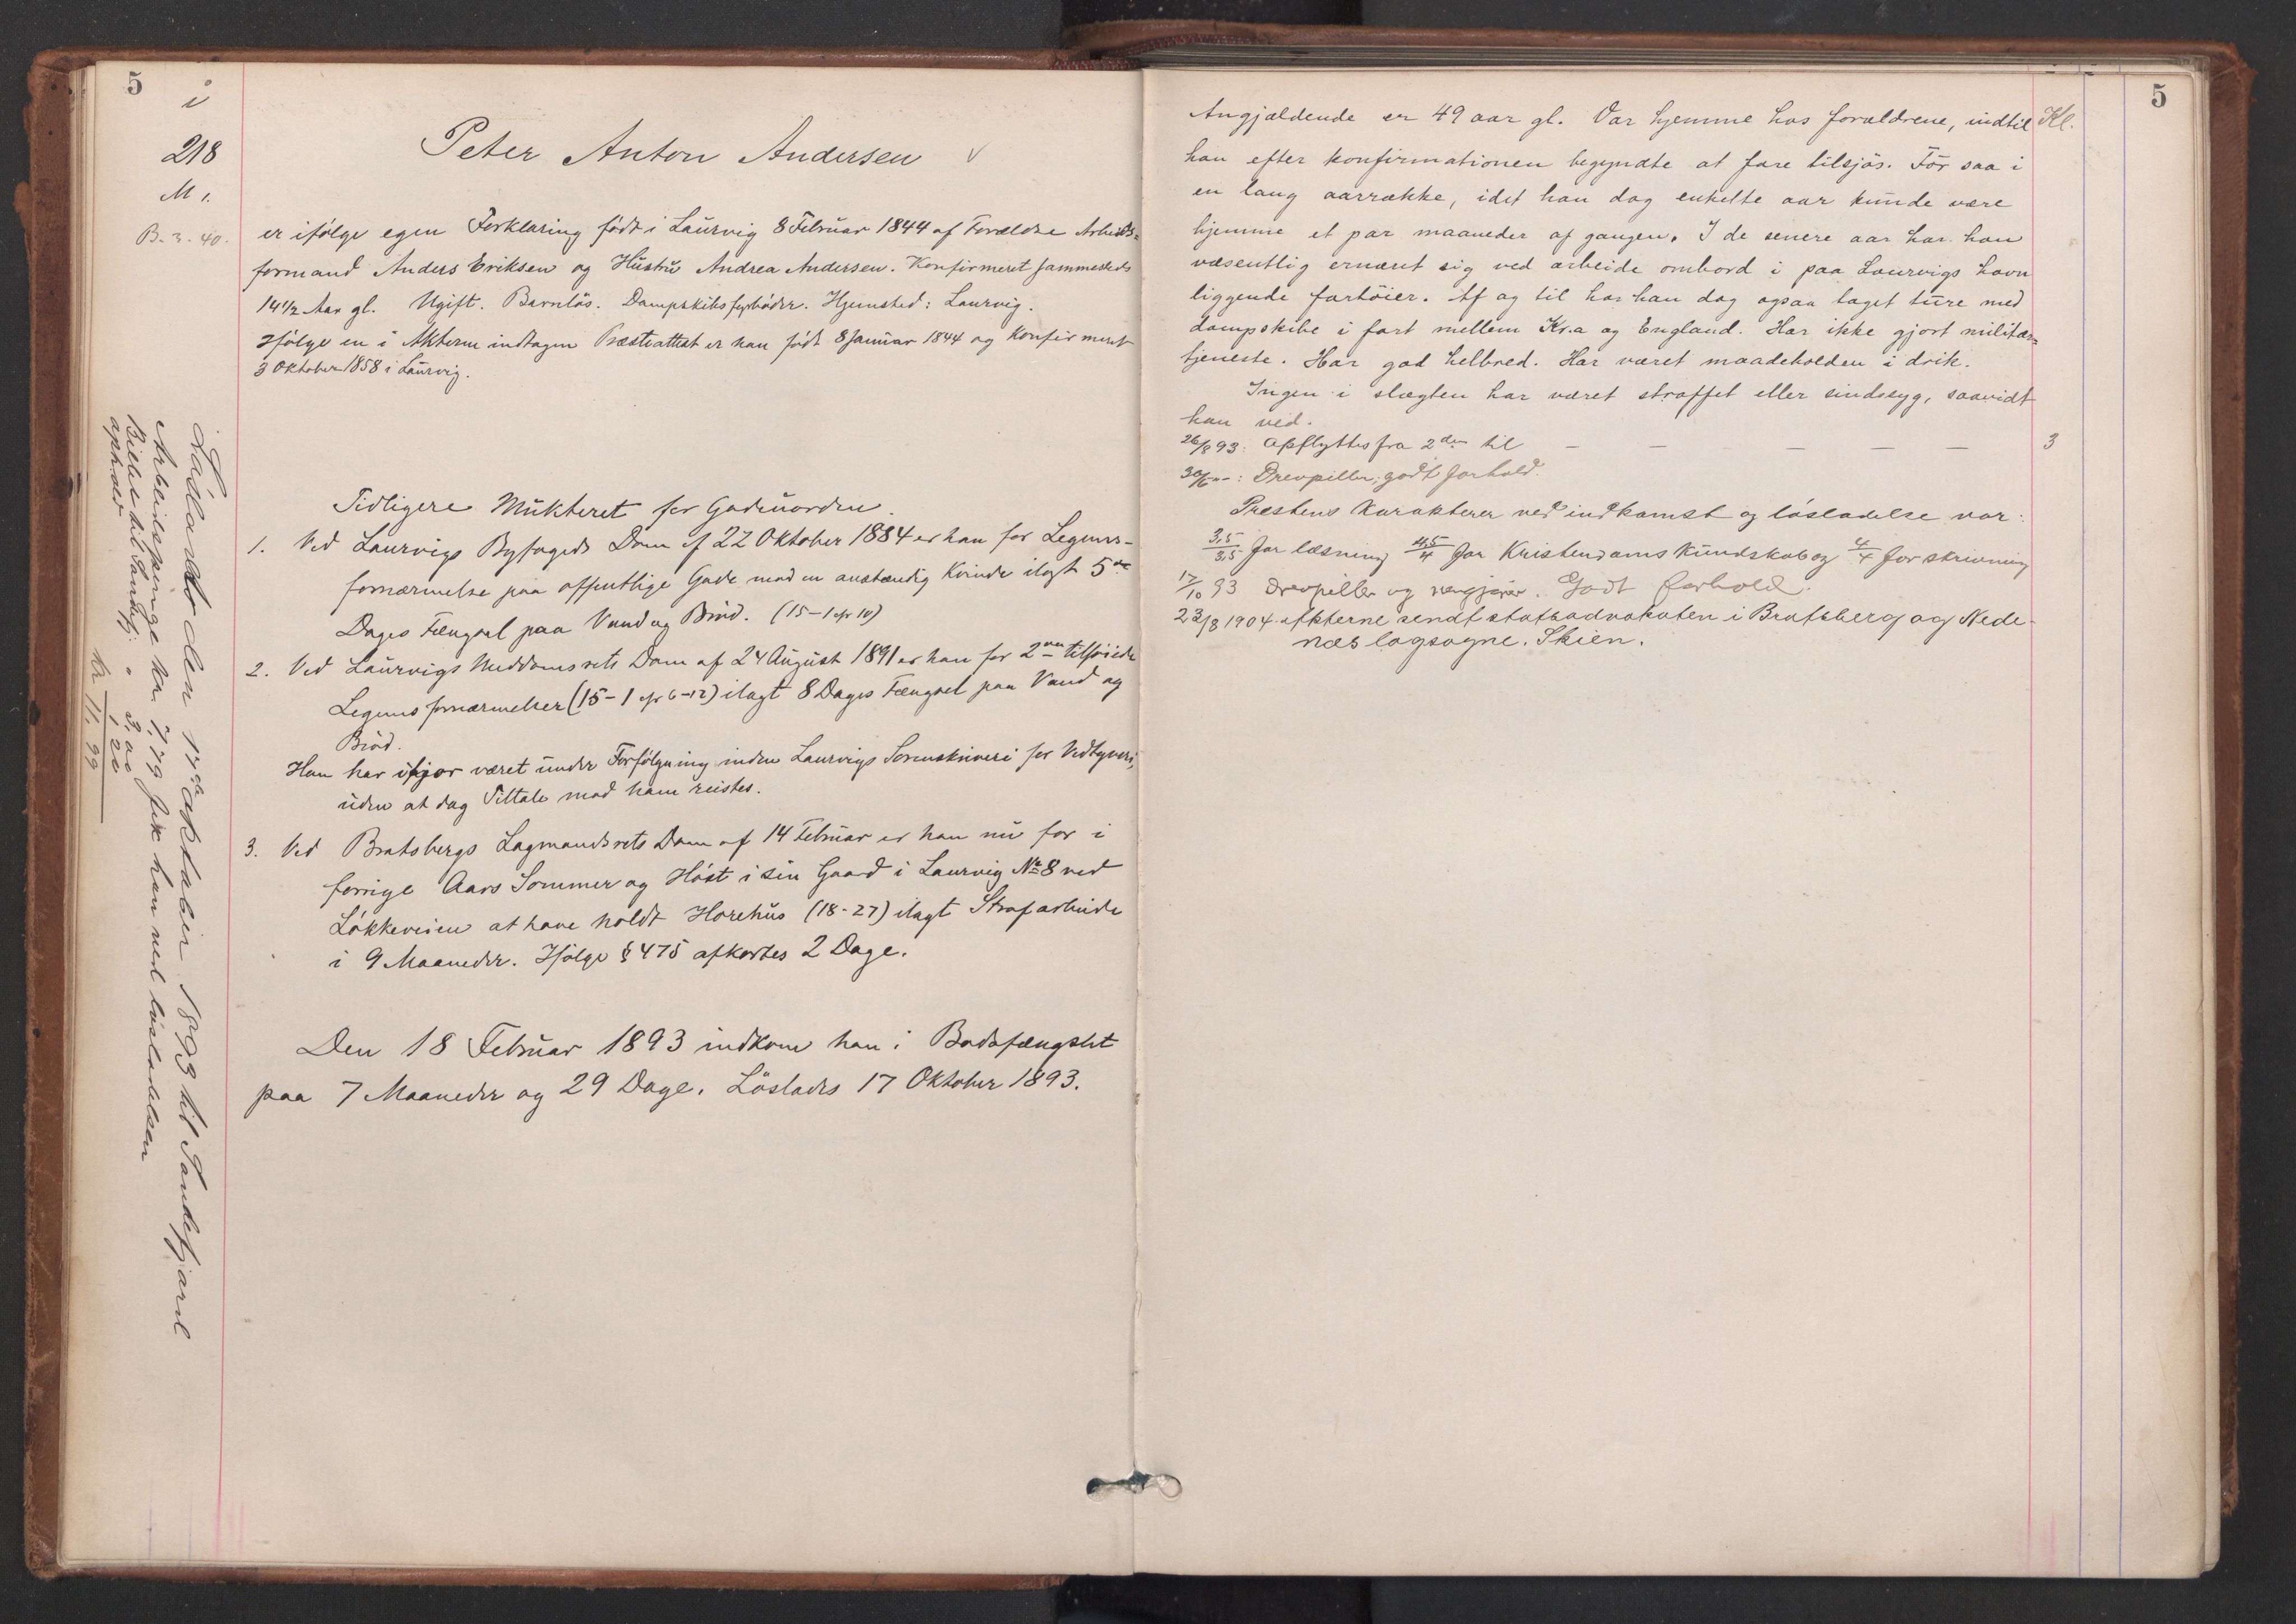 5
i
218
M 1.
B. 3. 40.
Peter Anton Andersen
er ifölge egen Forklaring födt i Laurvig 8 Februar 1844 af Forældre Arbeids-
formand Anders Eriksen og Hustru Andrea Andersen. Konfirmeret sammesteds
14 1/2 Aar gl. Ugift. Barnlös. Dampskibsfyrböder. Hjemsted: Laurvig.
Ifölge en i Akterne indtagen Præsteattest er han födt 8 Januar 1844 og Konfirmeret
3 Oktober 1858 i Laurvig.
Tidligere Mulkteret for Gadeuorden.
1. Ved Laurvigs Byfogeds Dom af 22 Oktober 1884 er han for Legems-
fornærmelse paa offentlige Gade mod en anstændig Kvinde ilagt 5
Dages Fængsel paa Vand og Bröd. (15-1 cfr 10)
2. Ved Laurvigs Meddomsrets Dom af 24 August 1891 er han for 2 tilföiede
Legemsfornærmelser (15-1 cfr 6-12) ilagt 8 Dages Fængsel paa Vand og
Bröd.
Han har ifjor været under Forfölgning inden Laurvigs Sorenskriveri for Vedtyveri,
uden at dog Tiltale mod ham reistes.
3. Ved Bratsbergs Lagmandsrets Dom af 14 Februar er han nu for i
forrige Aars Sommer og Höst i sin Gaard i Laurvig No 8 ved
Lökkeveien at have holdt Horehus (18-27) ilagt Strafarbeide
i 9 Maaneder. Ifölge § 475 afkortes 2 Dage.
Den 18 Februar 1893 indkom han i Bodsfængslet
paa 7 Maaneder og 29 Dage. Löslades 17 Oktober 1893.
Lösladt den 17de oktober 1893 til Sandefjord
Arbeidspenge kr. 7,79 fik han ved lösladelsen
Billet til Sandefj: " 3,00
ophold 1,20
kr 11.99
5
Angjældende er 49 aar gl. Var hjemme hos forældrene, indtil
Kl.
han efter konfirmationen begyndte at fare tilsjös. För saa i
en lang aarrække, idet han dog enkelte aar kunde være
hjemme et par maaneder af gangen. I de senere aar har han
væsentlig ernæret sig ved arbeide ombord i paa Laurvigs havn
liggende fartöier. Af og til har han dog ogsaa taget ture med
dampskibe i fart mellem Kr.a og England. Har ikke gjort militær-
tjeneste. Har god helbred. Har været maadeholden i drik.
Ingen i slægten har været straffet eller sindssyg, saavidt
han ved.
26/8 93: opflyttes fra 2den til — — — — — 3
30/6 –: Drevpiller, godt forhold.
Prestens Karakterer ved indkomst og lösladelse var:
3,5/3,5 for læsning 4,5/4 for Kristendoms kundskab og 4/4 for skrivning
17/10 93 Drevpiller og . Godt forhold.
23/8 1904 akterne sendt statsadvokaten i Bratsberg og Nede-
næs lagsogne. Skien.